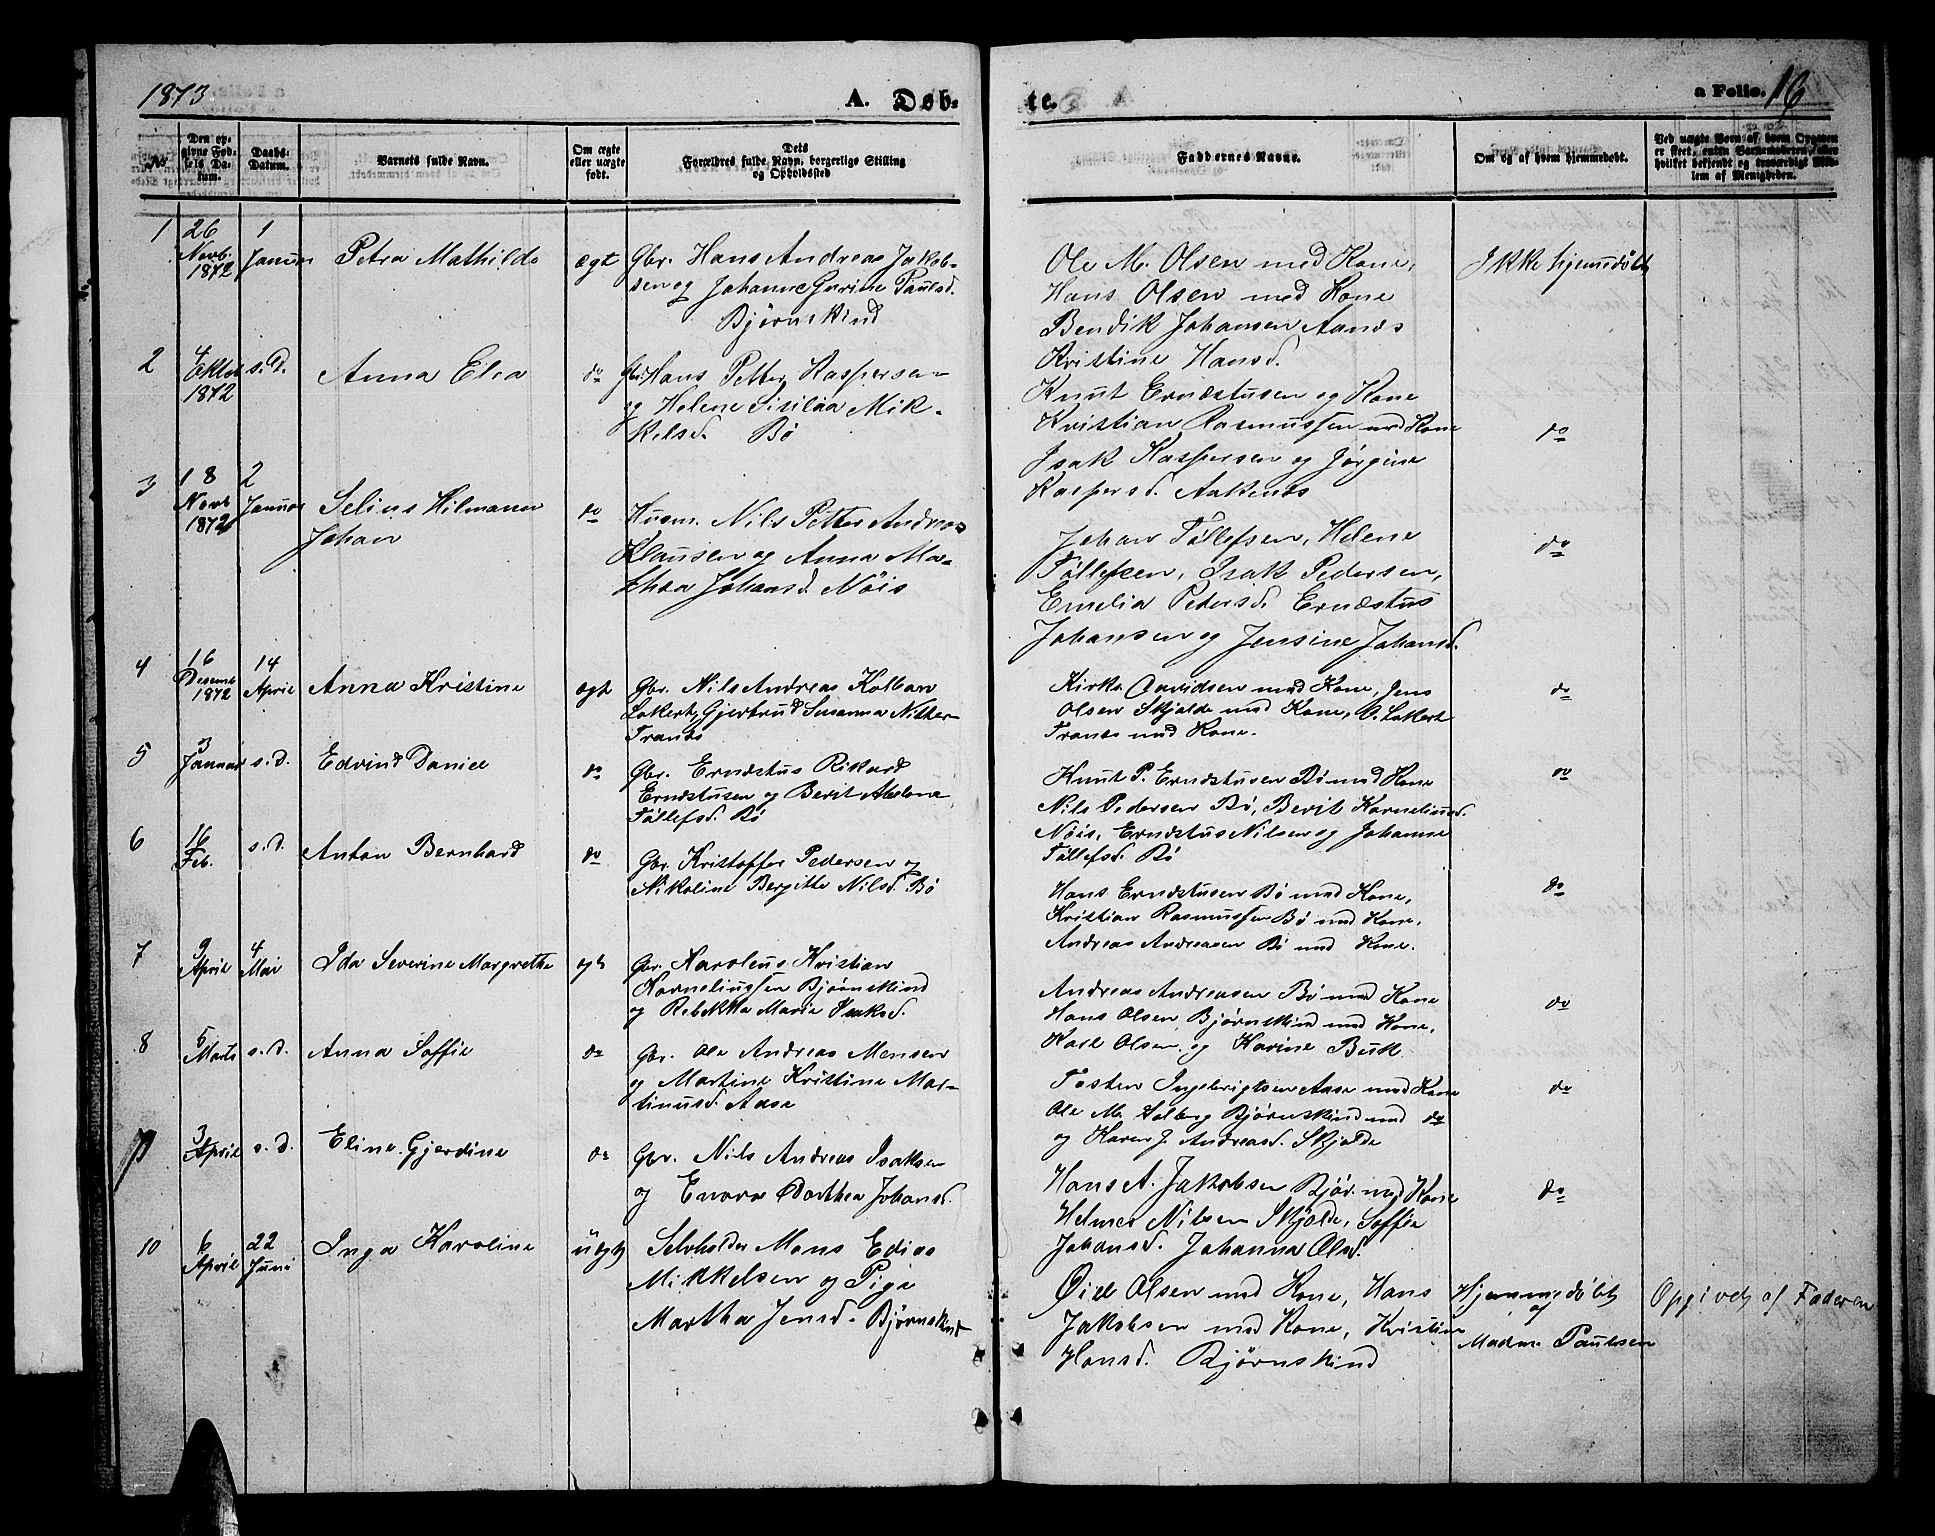 1873
A. Døb-
te.
a Folio. 16
No
Den opgivne Fødsels Datum.
Daabs-Datum.
Barnets fulde Navn.
Om ægte eller uægte født.
Dets Forældres fulde Navn, borgerlige Stilling og Opholdssted
Faddernes Navne.
Om og af hvem hjemmedøbt.
Ved uægte Børn af hvem Opgaven er skeet, enten Barnemoderen, eller hvilket bekjendt og troværdigt Medlem af Menigheden.
1
26 Novb. 1872
1 Januar
Petra Mathilde
ægt
Gbr. Hans Andreas Jakob-
sen og Johanne Gurine Paulsd.
Bjørnskind
Ole M. Olsen med Kone,
Hans Olsen med Kone
Bendik Johansen Aanes
Kristine Hansd.
Ikke hjemedøbt
2
4 Oktob 1872
s.D.
Anna Elea
do
Gbr. Hans Petter Kaspersen
og Helene Sisilia Mik-
kelsd. Bø
Knut Ernæstusen og Kone
Kristian Rasmussen med Kone
Isak Kaspersen og Jørgine
Kaspersd. Aakenes
do
3
18 Novb 1872
2 Januar
Selius Hilmaner
Johan
do
Husm. Nils Petter Andreas
Klausen og Anna Ma-
thea Johansd. Nöis
Johan Töllefsen, Helene
Töllefsen, Isak Pedersen,
Emelia Pedersd. Ernæstus
Johansen og Jensine Johansd.
do
4
16 Desemb 1872
14 April
Anna Kristine
ægt
Gbr. Nils Andreas Kolban
Lokert, Gjertrud Susanna Nitter-
Tranes
Kirks. Davidsen med Kone, Jens
Olsen Skjolde med Kone, O. Lokert
Tranes med Kone.
do
5
3 Januar
s.d.
Edvind Daniel
do
Gbr. Ernæstus Rikard
Ernæstusen og Berit Abelone
Töllefsd. Bø
Knut P. Ernæstusen Bø med Kone
Nils Pedersen Bø, Berit Korneliusd.
Nöis, Ernæstus Nilsen og Johanne
Töllefsd. Bø
do
6
16 Feb.
s.d.
Anton Bernhard
do
Gbr. Kristoffer Pedersen og
Nikoline Bergitte Nilsd. Bø
Hans Ernæstusen Bø med Kone,
Kristian Rasmussen Bø med Kone,
Andreas Andreasen Bø med Kone.
do
7
9 April
4 Mai
Ida Severine Margrethe
ægt
Gbr. Karoleus Kristian
Korneliussen Bjørnskind
og Rebekka Marie Isaksd.
Andreas Andreasen Bø med Kone
Hans Olsen Bjørnskind med Kone,
Karl Olsen og Karine Buk
do
8
5 Marts
s.d.
Anna Soffie
do
Gbr. Ole Andreas Monsen
og Martine Kristine Mar-
tinusd. Aase
Tosten Ingebrigtsen Aase med Kone
Ole M. Solberg Bjørnskind med do
og Karen J. Andreasd. Skjolde
do
9
3 April
s.d.
Eline Gjerdine
do
Gbr. Nils Andreas Isaksen
og Enora Dorthea Johansd.
Hans A. Jakobsen Bjør. med Kone
Helmer Nilsen Skjolde, Soffie
Johansd. Johanna Olsd.
do
10
6 April
22 Juni
Inga Karoline
uægt
Selvholder Mons Edias
Mikkelsen og Pige
Martha Jensd. Bjørnskind
Øiel Olsen med Kone, Hans
Jakobsen med Kone, Kristine
Hansd. Bjørnskind
Hjemmedøbt
af
Madm. Paulsen
Opgivet af Faderen